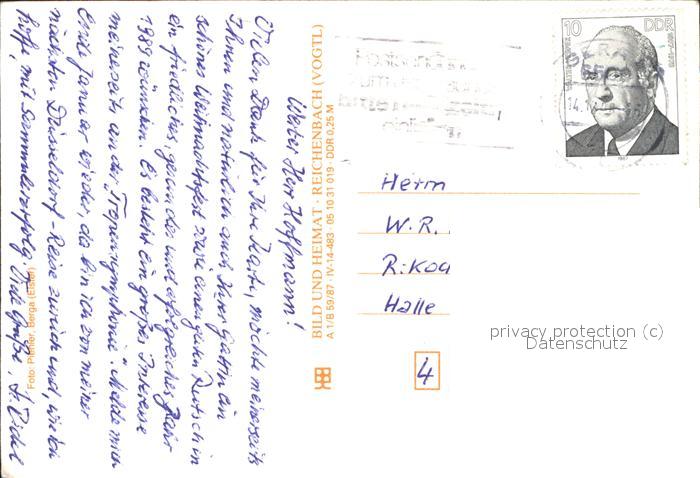 Werter Herr Hoffmann!
Vielen Dank für Ihre Karte, möchte meinerseits
Ihnen und natürlich auch Ihrer Gattin ein
schönes Weihnachtsfest sowie einen guten Rutsch in
ein friedliches, gesundes und erfolgreiches Jahr
1989 wünschen. Es besteht ein großes Interesse
meinerseits an der
Melde mich
Ende Januar wieder, da bin ich von meiner
nächsten Düsseldorf-Reise zurück und, wie ich
hoffe, mit Sammlererfolg. Viele Grüße,
Foto: Berga (Elster)
BILD UND HEIMAT · REICHENBACH (VOGTL)
A 1/B 59/87 · IV-14-483 · 05 10 31 019 · DDR 0,25 M
10 DDR
1987
GERA
14.1
Herrn
W.R.
Halle
4
privacy protection (c)
Datenschutz